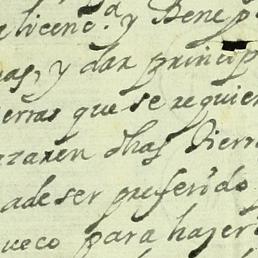 licenc.ᵃ y Bene
as, y dar princip
ierras que se requier
zaren dhas Tierra
a de ser preferido
ueco para hazer